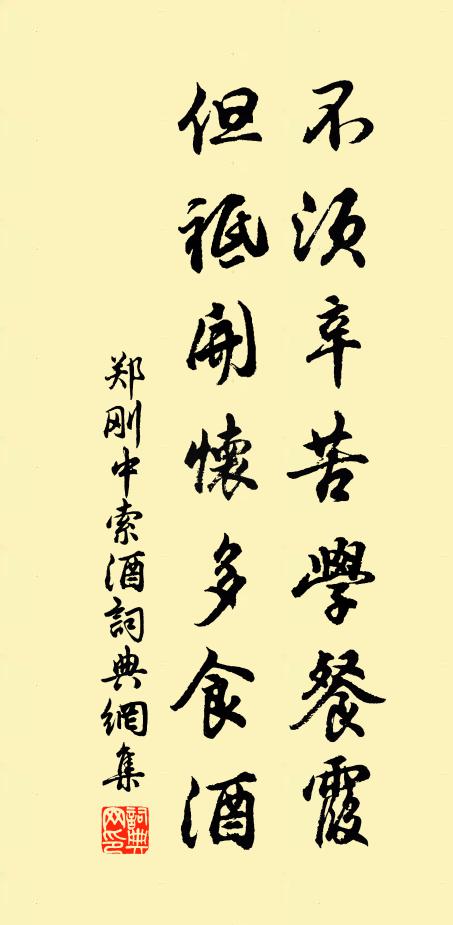 不須辛苦學餐霞
但祗開懷多食酒
郑刚中索酒詞典網集
詞典網印